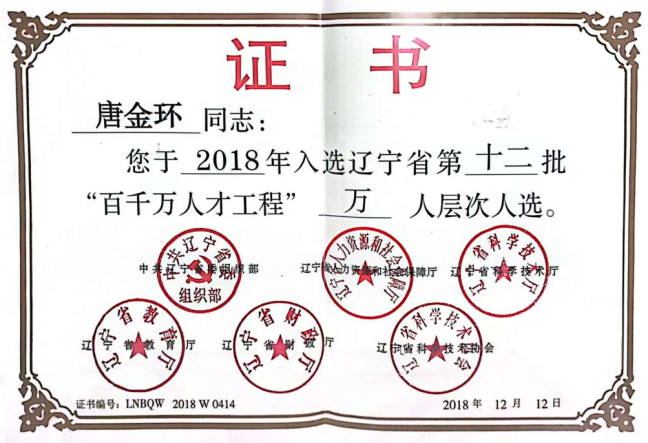 证 书
唐金环 同志：
您于 2018 年入选辽宁省第 十二 批
“百千万人才工程” 万 人层次人选。
中共辽宁省委组织部 辽宁省人力资源和社会保障厅 辽宁省科学技术厅
中共辽宁省委
组织部
辽宁省人力资源和社会保障厅
辽宁省科学技术厅
辽宁省教育厅 辽宁省财政厅 辽宁省科学技术协会
辽宁省教育厅
辽宁省财政厅
辽宁省科学技术协会
证书编号：LNBQW 2018 W 0414 2018 年 12 月 12 日